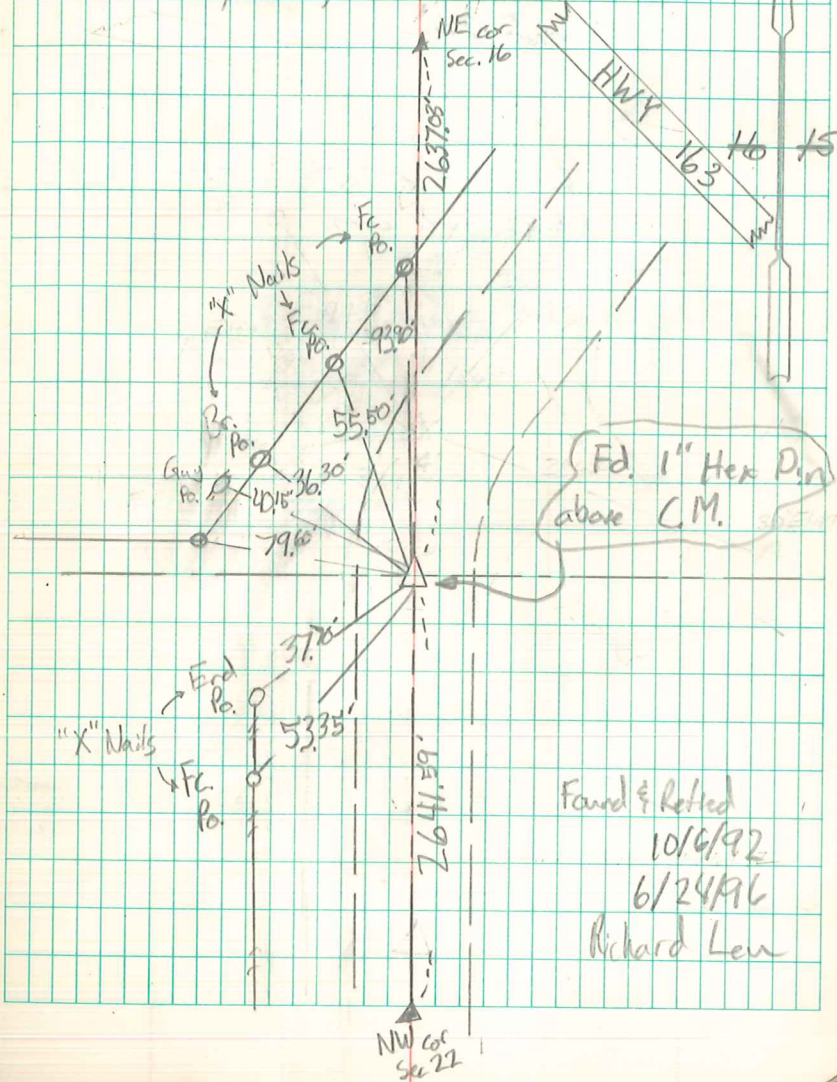 NE cor
Sec. 16
HWY 163
16 15
2637.05'
Fc.
Po.
"X" Nails
Fc.
Po.
93.90'
55.50'
Br.
Po.
Guy
Po.
36.30'
40.15'
79.60'
Fd. 1" Hex Pin
above C.M.
37.70'
End
Po.
"X" Nails
53.35'
Fc.
Po.
2641.59'
Found & Retied
10/6/92
6/24/96
Richard
NW cor
Sec 22